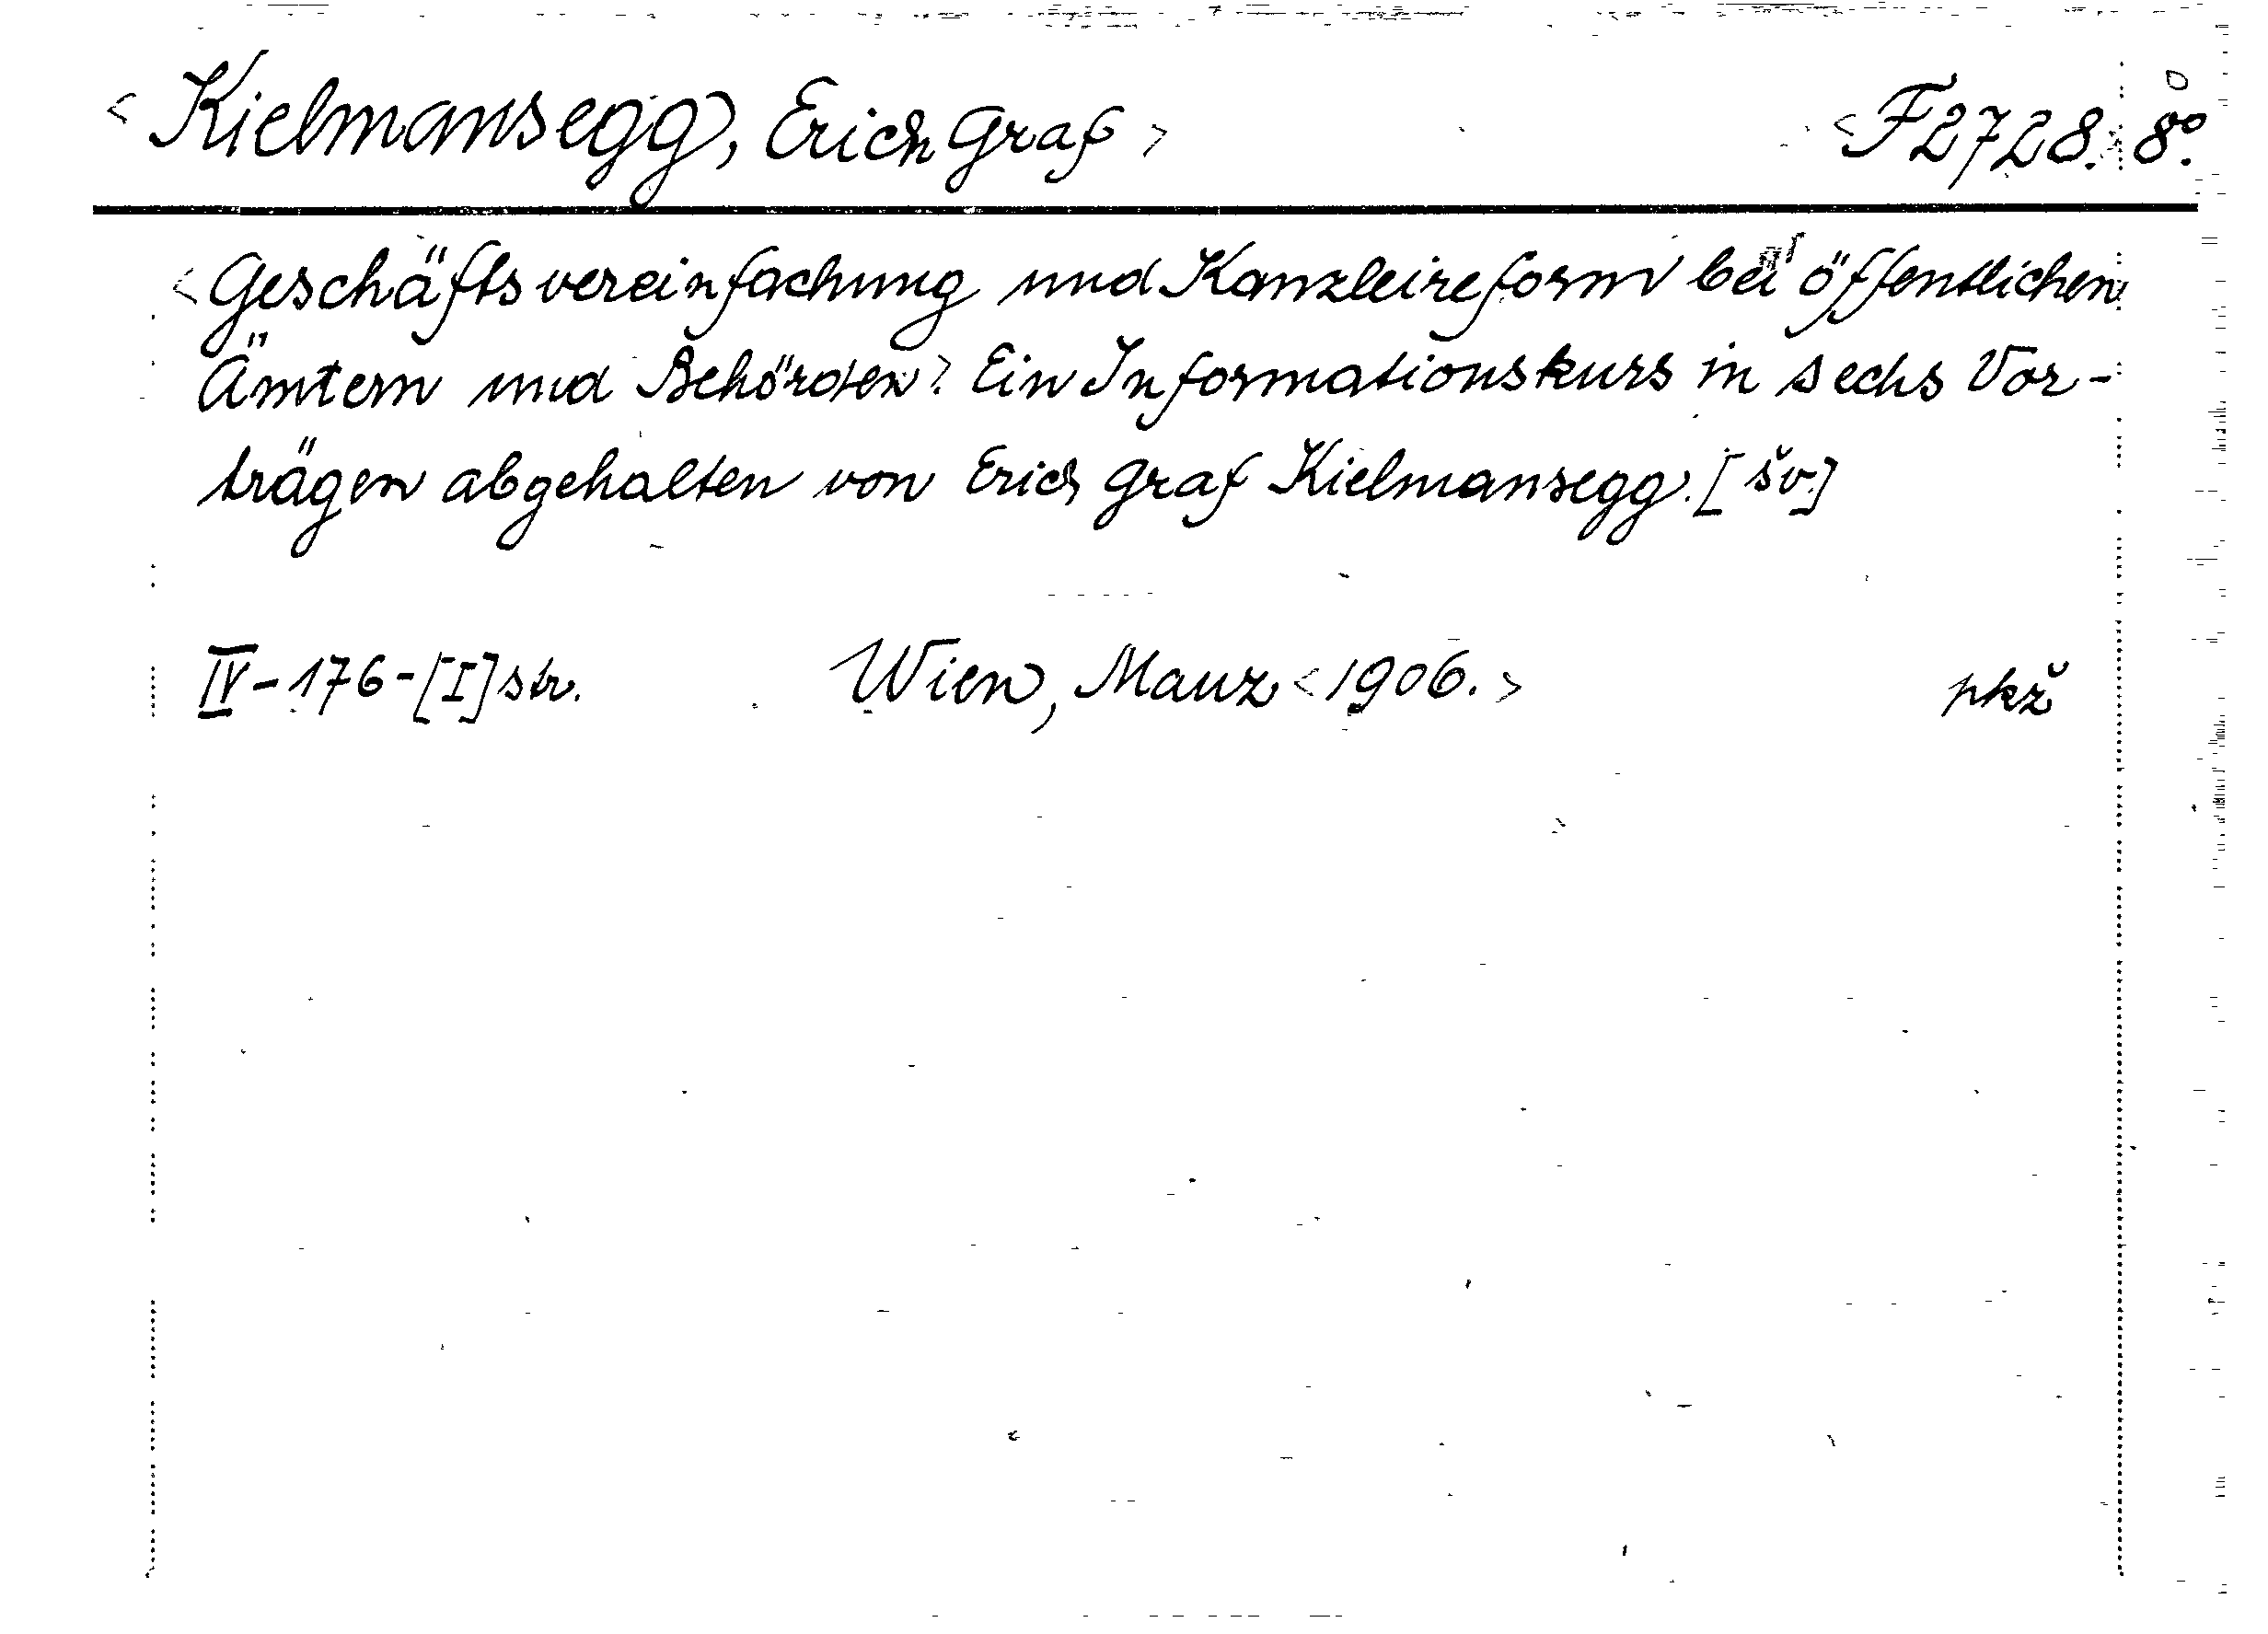 <Kielmansegg, Erich Graf> <F 2728. 8°.
<Geschäftsvereinfachung und Kanzleireform bei öffentlichen
Ämtern und Behörden>. Ein Informationskurs in sechs Vor-
trägen abgehalten von Erich Graf Kielmansegg. [šv.]
IV-176-[I] str. Wien, Manz <1906.> pkž